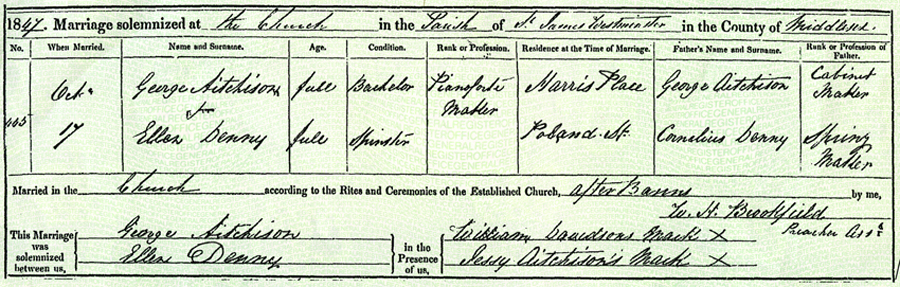 1847. Marriage solemnized at the Church in the Parish of St. James Westminster in the County of Middlesex.
No. When Married. Name and Surname. Age. Condition. Rank or Profession. Residence at the Time of Marriage. Father's Name and Surname. Rank or Profession of Father.
Octr George Aitchison full Bachelor Pianoforte Maker Marris Place George Aitchison Cabinet Maker
105 17 Ellen Denny full Spinster Poland St. Cornelius Denny Spring Maker
Married in the Church according to the Rites and Ceremonies of the Established Church, after Banns by me,
W. H. Brookfield
Preacher Asst
This Marriage was solemnized between us, George Aitchison in the Presence of us, William Davidsons Mark X
Ellen Denny Jessy Aitchison's Mark X